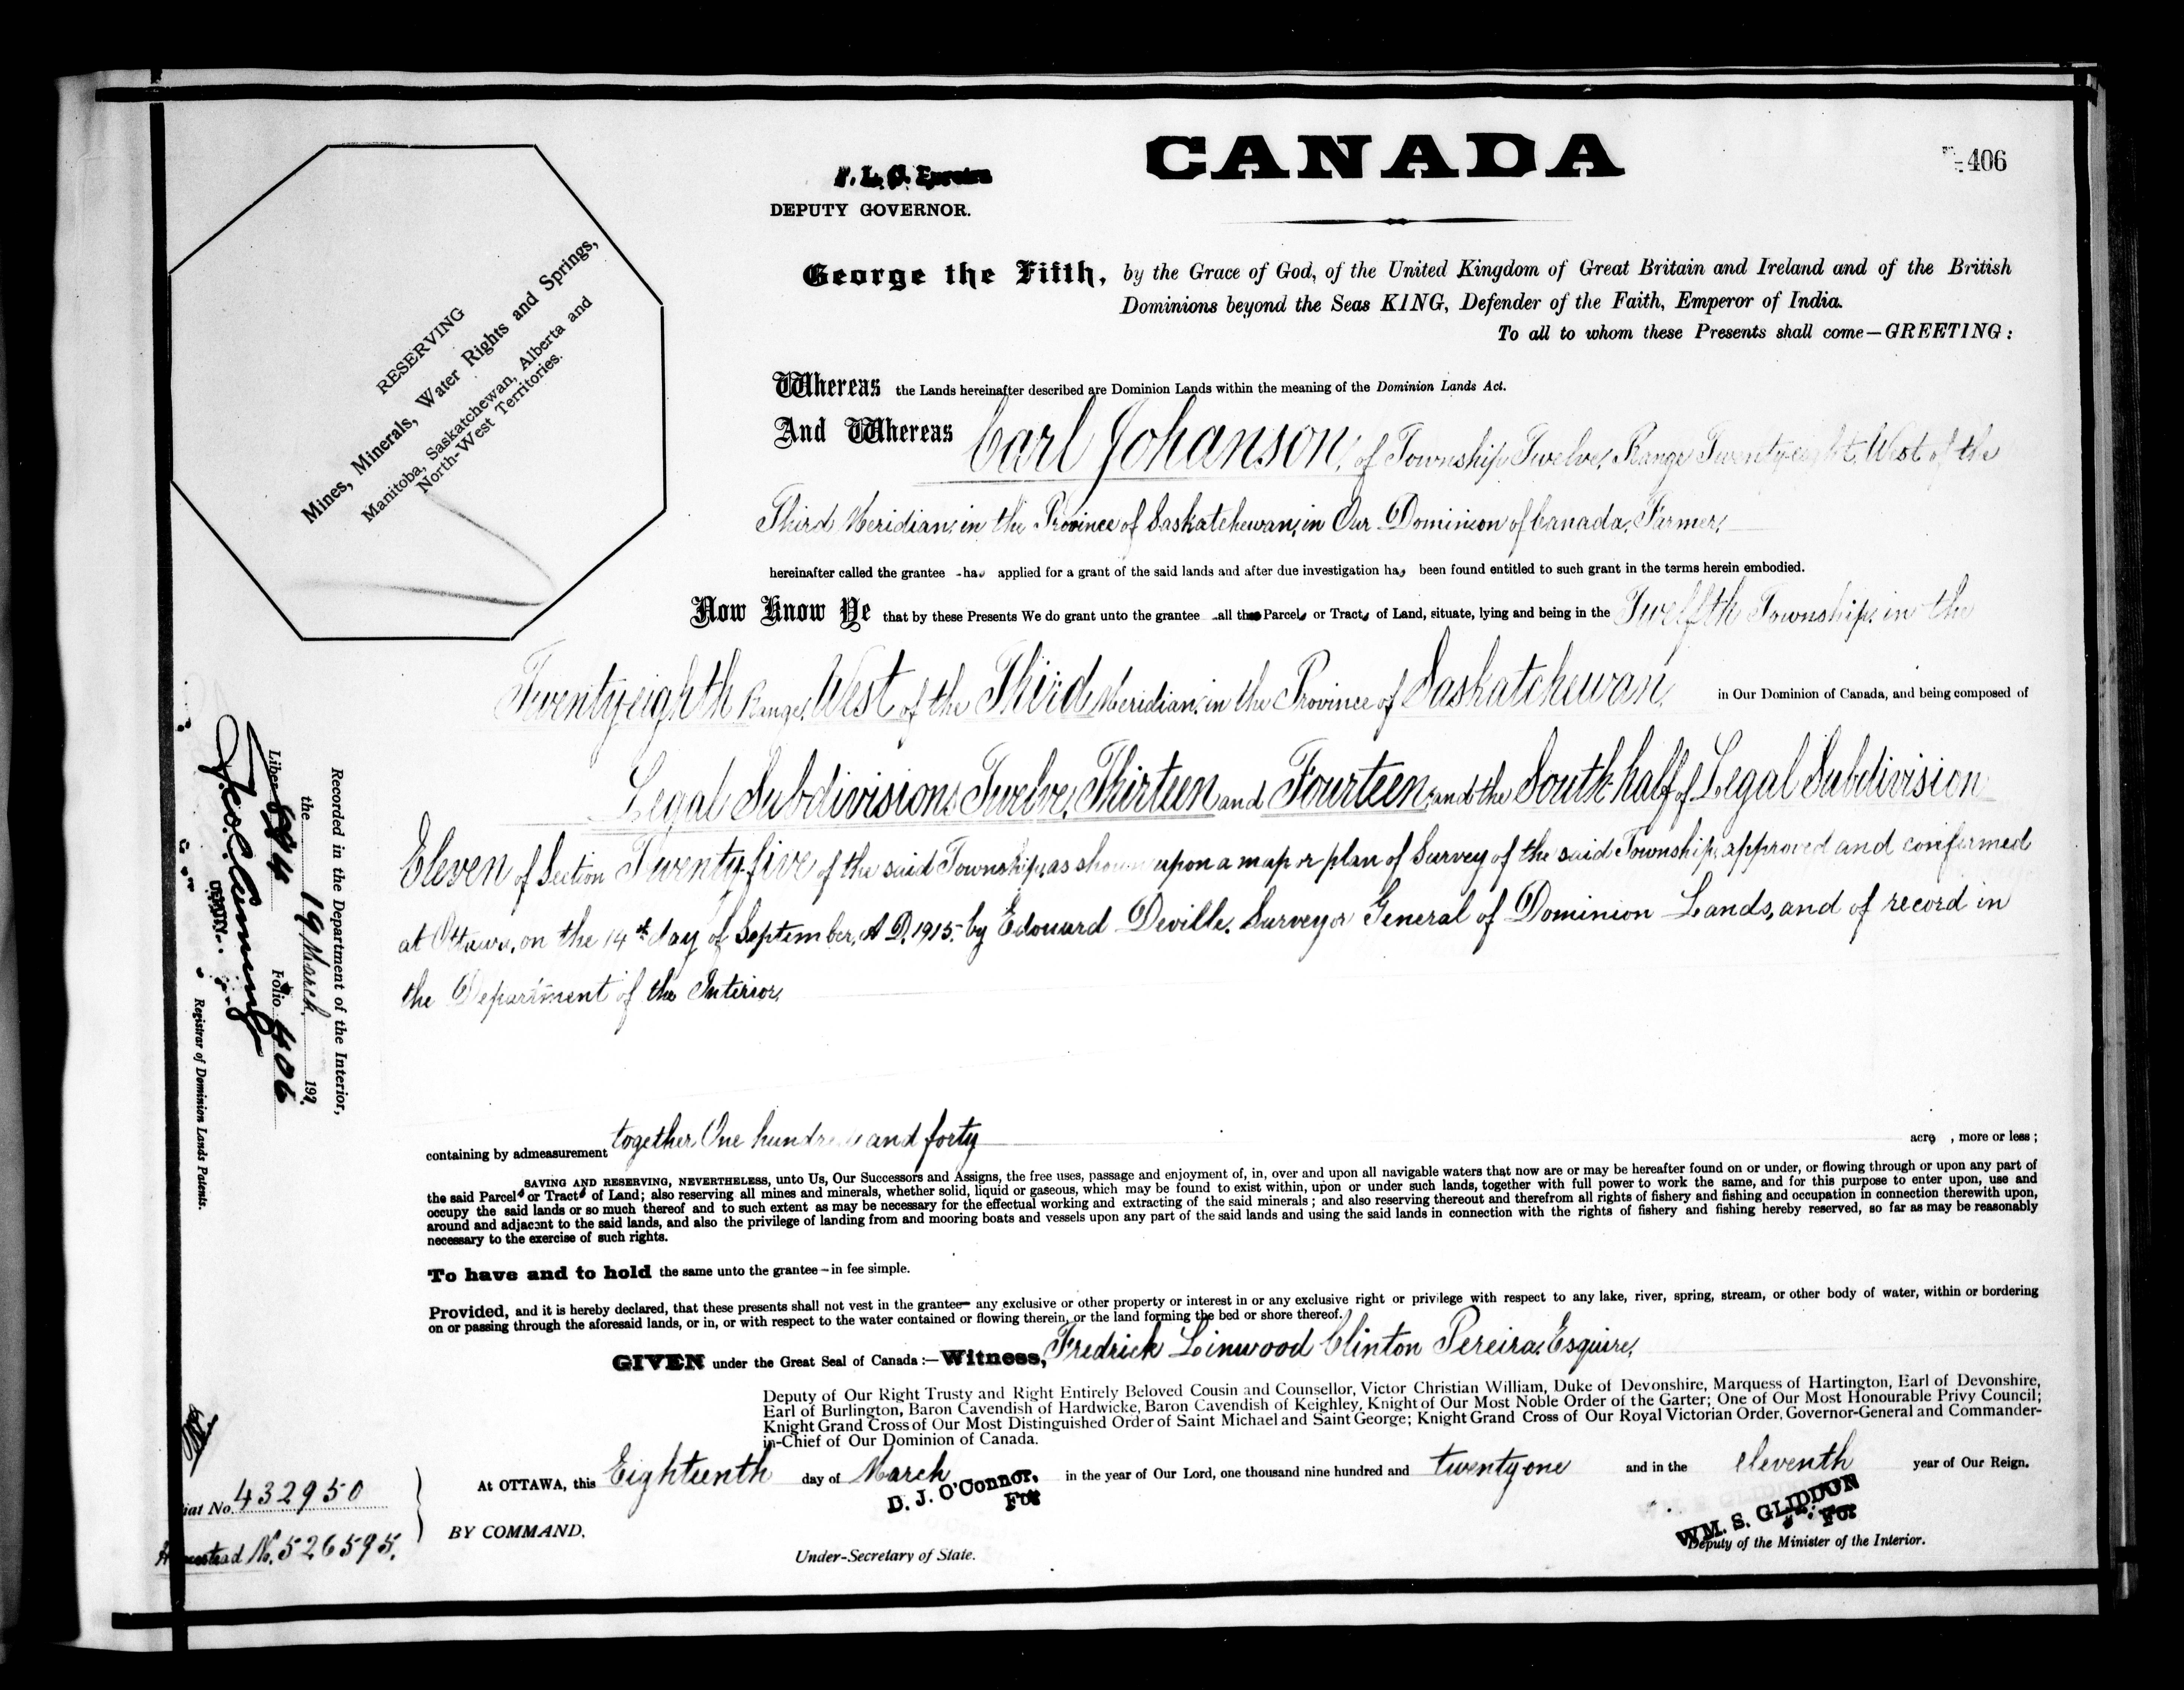 CANADA
406
DEPUTY GOVERNOR.
George the Fifth, by the Grace of God, of the United Kingdom of Great Britain and Ireland and of the British
Dominions beyond the Seas KING, Defender of the Faith, Emperor of India.
To all to whom these Presents shall come—GREETING:
RESERVING
Mines, Minerals, Water Rights and Springs,
Manitoba, Saskatchewan, Alberta and
North-West Territories.
Whereas the Lands hereinafter described are Dominion Lands within the meaning of the Dominion Lands Act.
And Whereas Carl Johanson, of Township Twelve, Range Twenty-eight, West of the
Third Meridian, in the Province of Saskatchewan, in Our Dominion of Canada, Farmer,
hereinafter called the grantee has applied for a grant of the said lands and after due investigation has been found entitled to such grant in the terms herein embodied.
Now Know Ye that by these Presents We do grant unto the grantee all the Parcel or Tract of Land, situate, lying and being in the Twelfth Township, in the
Twenty-eighth Range, West of the Third Meridian, in the Province of Saskatchewan, in Our Dominion of Canada, and being composed of
Legal Subdivisions Twelve, Thirteen and Fourteen, and the South half of Legal Subdivision
Eleven of Section Twenty-five of the said Township, as shown upon a map or plan of Survey of the said Township, approved and confirmed
at Ottawa, on the 14th day of September, A.D. 1915, by Edouard Deville, Surveyor General of Dominion Lands, and of record in
the Department of the Interior,
containing by admeasurement together One hundred and forty acre , more or less;
SAVING AND RESERVING, NEVERTHELESS, unto Us, Our Successors and Assigns, the free uses, passage and enjoyment of, in, over and upon all navigable waters that now are or may be hereafter found on or under, or flowing through or upon any part of
the said Parcel or Tract of Land; also reserving all mines and minerals, whether solid, liquid or gaseous, which may be found to exist within, upon or under such lands, together with full power to work the same, and for this purpose to enter upon, use and
occupy the said lands or so much thereof and to such extent as may be necessary for the effectual working and extracting of the said minerals; and also reserving thereout and therefrom all rights of fishery and fishing and occupation in connection therewith upon,
around and adjacent to the said lands, and also the privilege of landing from and mooring boats and vessels upon any part of the said lands and using the said lands in connection with the rights of fishery and fishing hereby reserved, so far as may be reasonably
necessary to the exercise of such rights.
To have and to hold the same unto the grantee—in fee simple.
Provided, and it is hereby declared, that these presents shall not vest in the grantee any exclusive or other property or interest in or any exclusive right or privilege with respect to any lake, river, spring, stream, or other body of water, within or bordering
on or passing through the aforesaid lands, or in, or with respect to the water contained or flowing therein, or the land forming the bed or shore thereof.
GIVEN under the Great Seal of Canada:—Witness, Fredrick Linwood Clinton Pereira, Esquire,
Deputy of Our Right Trusty and Right Entirely Beloved Cousin and Counsellor, Victor Christian William, Duke of Devonshire, Marquess of Hartington, Earl of Devonshire,
Earl of Burlington, Baron Cavendish of Hardwicke, Baron Cavendish of Keighley, Knight of Our Most Noble Order of the Garter; One of Our Most Honourable Privy Council;
Knight Grand Cross of Our Most Distinguished Order of Saint Michael and Saint George; Knight Grand Cross of Our Royal Victorian Order, Governor-General and Commander-
in-Chief of Our Dominion of Canada.
At OTTAWA, this Eighteenth day of March in the year of Our Lord, one thousand nine hundred and twenty one and in the eleventh year of Our Reign.
D. J. O'Connor,
For
WM. S. GLIDDON
For
BY COMMAND,
Under-Secretary of State.
Deputy of the Minister of the Interior.
Recorded in the Department of the Interior,
the 19 March 192
Liber 684 Folio 406
Registrar of Dominion Lands Patents.
iat No. 432950
Homestead No. 526595.